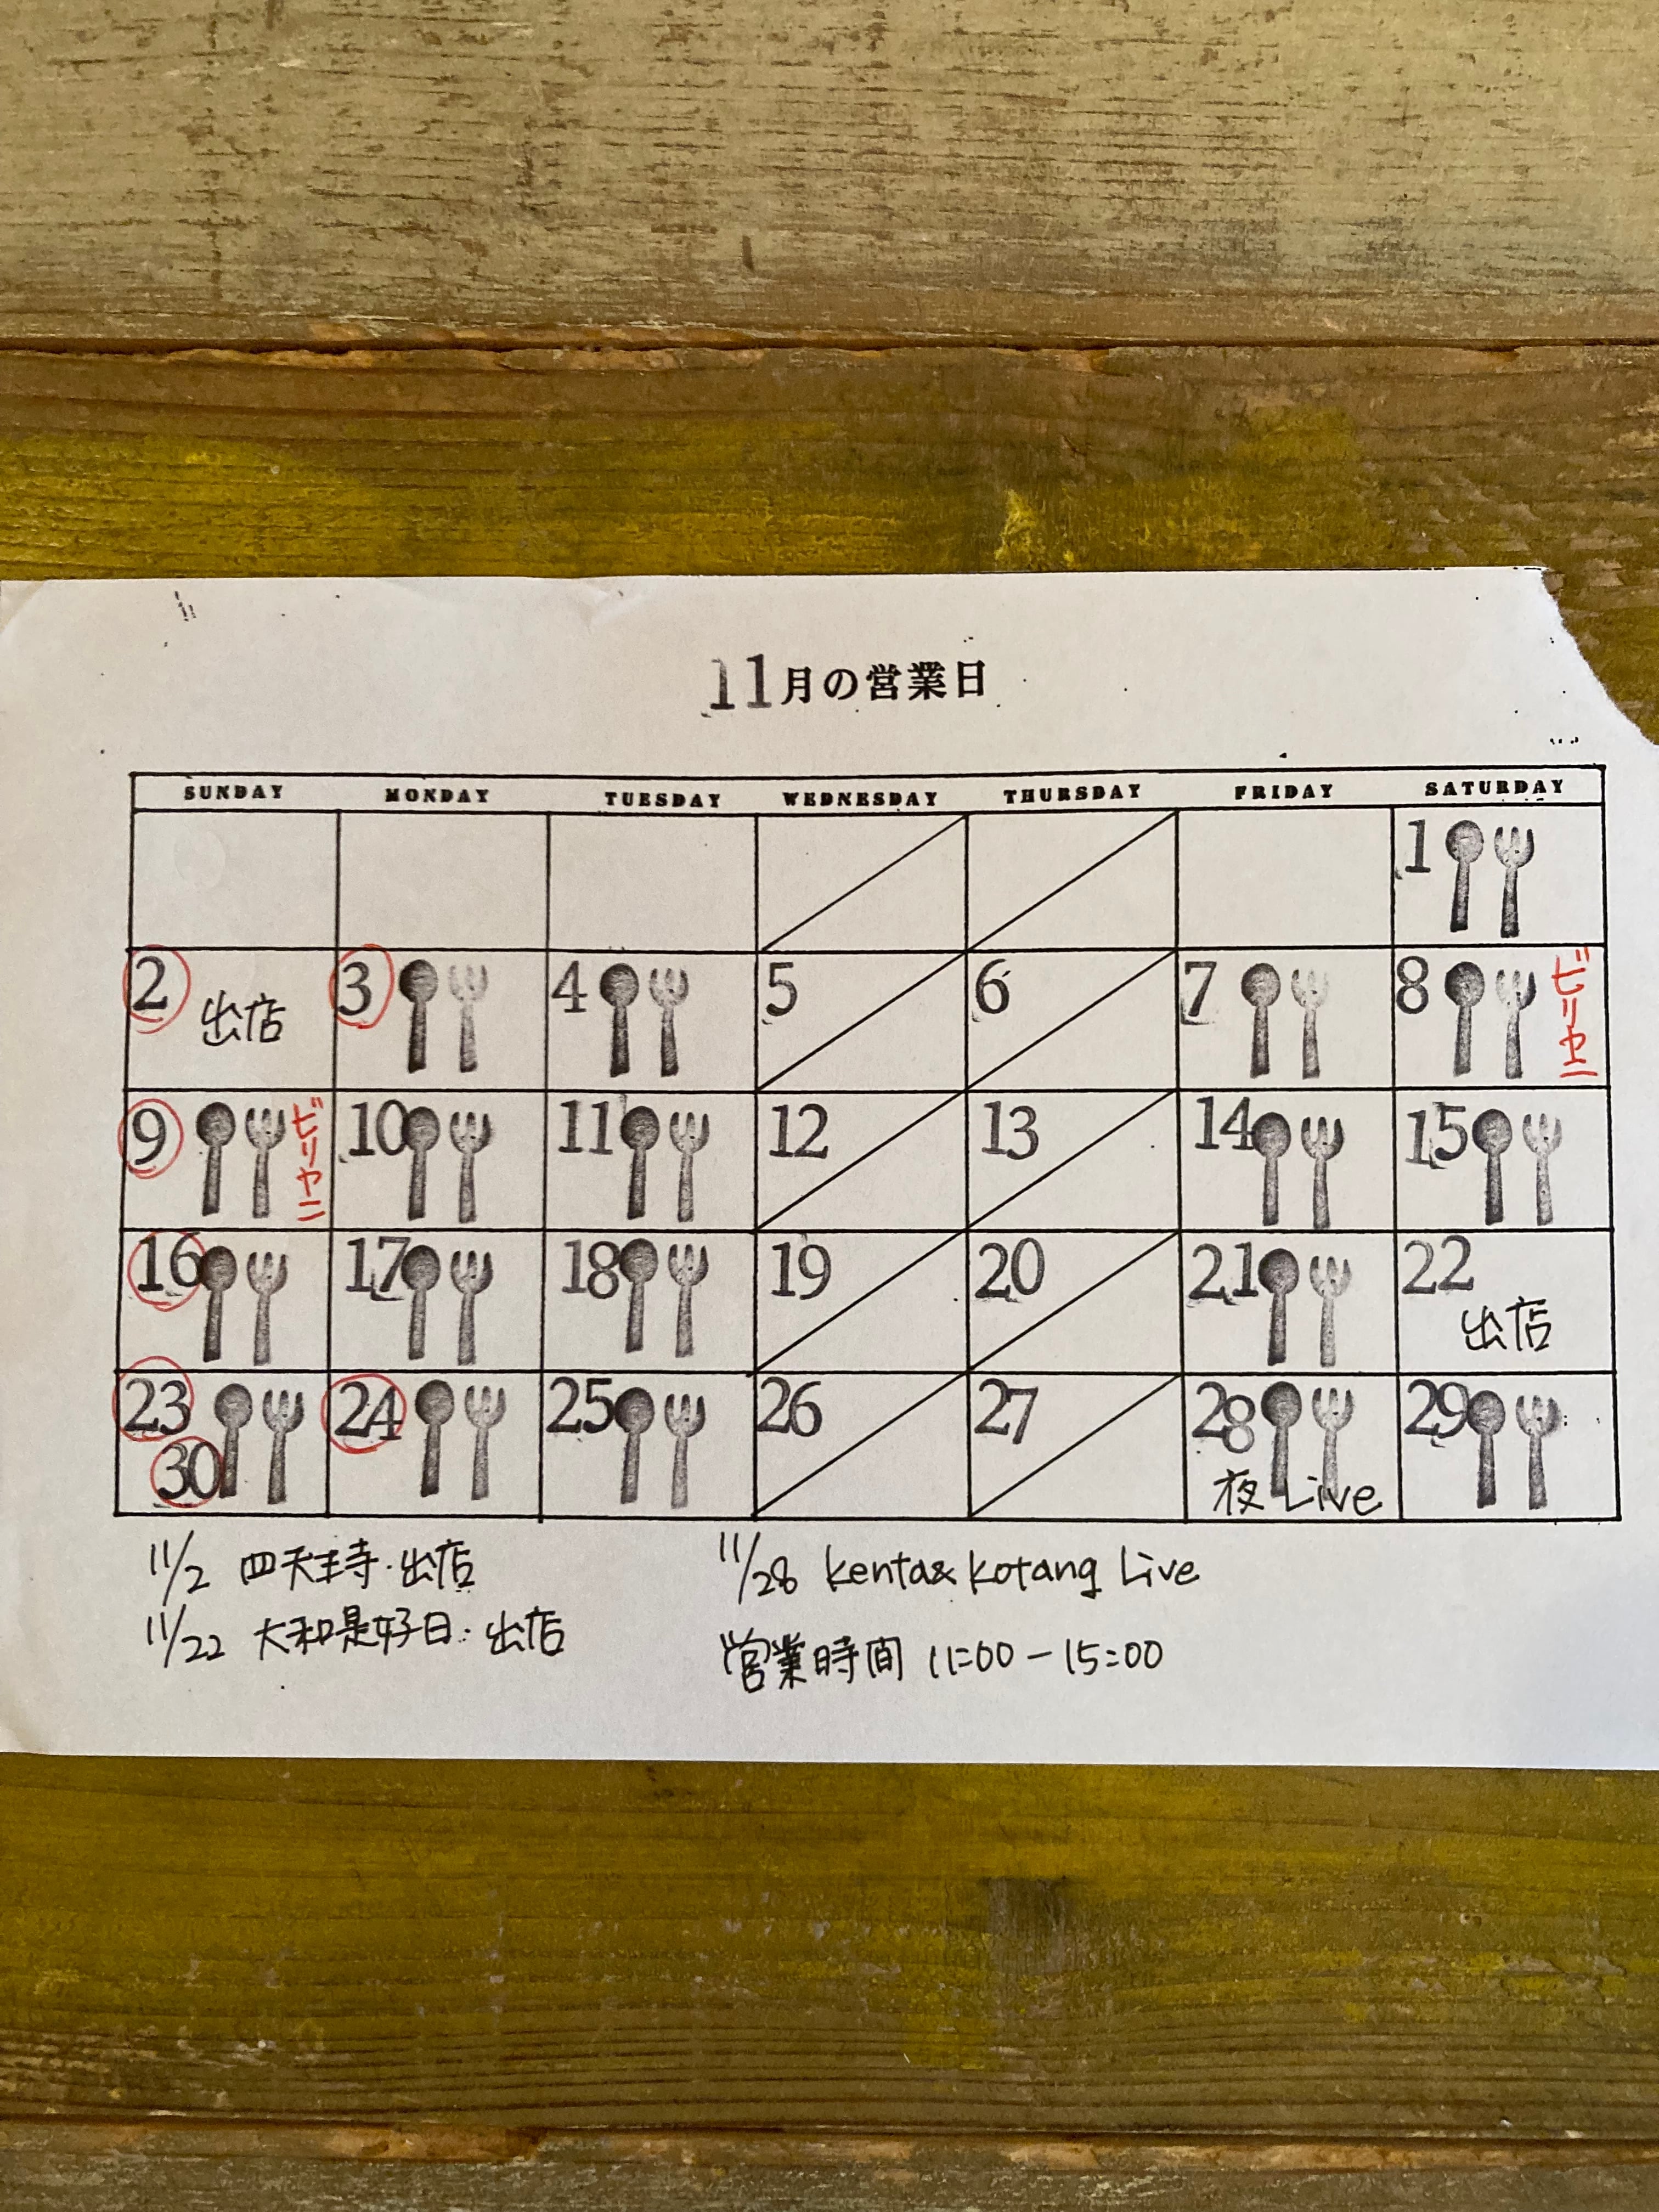 11月の営業日
SUNDAY MONDAY TUESDAY WEDNESDAY THURSDAY FRIDAY SATURDAY
1
2 出店 3 4 5 6 7 8 ビリヤニ
9 ビリヤニ 10 11 12 13 14 15
16 17 18 19 20 21 22 出店
23 30 24 25 26 27 28 夜 Live 29
11/2 四天王寺・出店
11/22 大和是好日・出店
11/28 kenta&kotang Live
営業時間 11:00-15:00